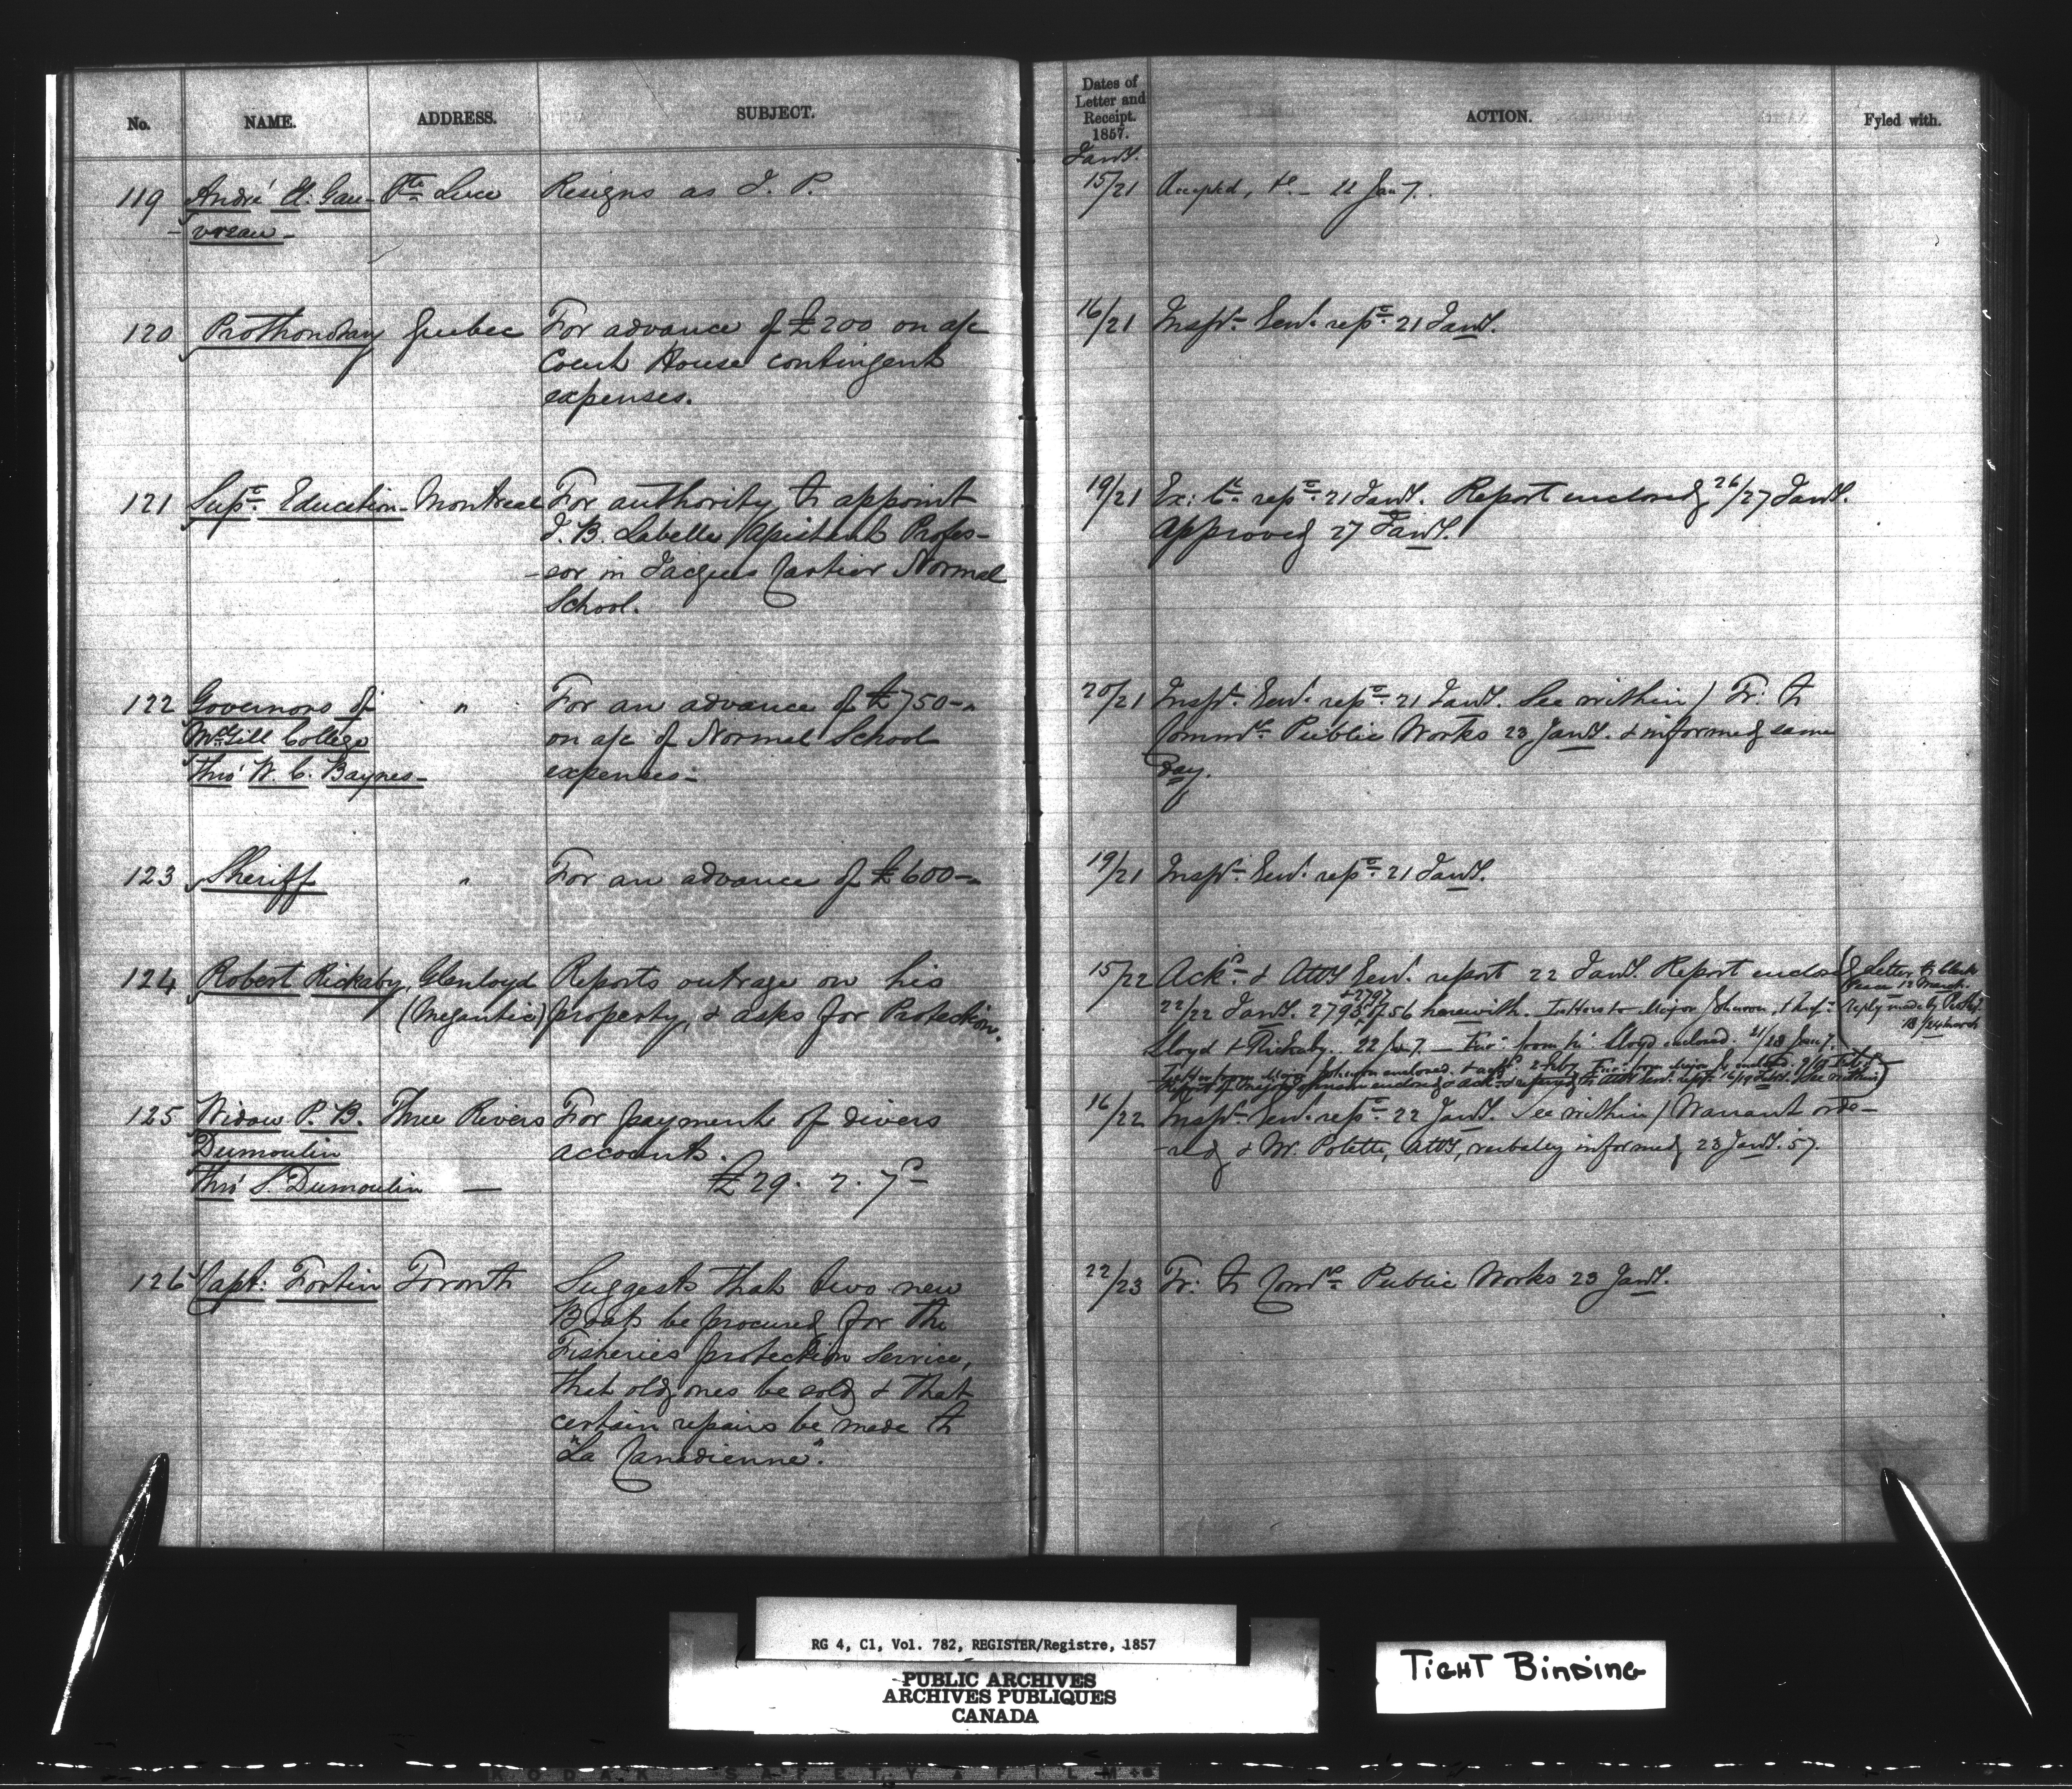 No. NAME. ADDRESS. SUBJECT. Dates of Letter and Receipt. 1857. ACTION. Fyled with.
Jany.
119 André H: Gau- Ste Luce Resigns as J. P. 15/21 Accepted, &c. - 22 Jan 7.
-vreau-
120 Prothonotary Quebec For advance of £200 on a/c 16/21 Inspr. Genl. repe. 21 Jany.
Court House contingent
expenses.
121 Supt. Education Montreal For authority to appoint 19/21 Ex: Cl. repe. 21 Jany. Report enclosed, 26/27 Jany.
J. B. Labelle Assistant Profes- Approved 27 Jany.
-sor in Jacques Cartier Normal
School.
122 Governors of " For an advance of £750-" 20/21 Inspr. Genl. repe. 21 Jany. See within/ Tr: to
McGill College on a/c of Normal School Commrs. Public Works 23 Jany. & informed same
thro' W. C. Baynes- expenses- day.
123 Sheriff " For an advance of £600-" 19/21 Inspr. Genl. repe. 21 Jany.
124 Robert Rickaby, Glenloyd Reports outrage on his 15/22 Ackd. & Atty Genl. report 22 Jany. Report enclosed Letter to Clerk
(Megantic) property, & asks for Protection. 22/22 Jany. 2795 & 2797/56 herewith. Letters to Major Johnson, Peace 12 March.
Lloyd & Rickaby. 22 Jan 7. - Fur: from Mr. Lloyd enclosed. 21/28 Jan 7. reply
Letter from Major Johnson enclosed & ackd. 2 Feby. 18/24 March
Johnson enclosed & ackd. & referred to Atty Genl. rept. 16/19 Feby. See within
125 Widow P. B. Three Rivers For payment of divers 16/22 Inspr. Genl. repe. 22 Jany. See within/ Warrant orde-
Dumoulin accounts. -red, & Mr. Polette, Atty, verbaley informed, 23 Jany. 57.
thro' S. Dumoulin — £29. 2. 7
126 Capt: Fortin Toronto Suggests that two new 22/23 Tr: to Comrs. Public Works 23 Jany.
Boats be procured for the
Fisheries protection service,
that old ones be sold & that
certain repairs be made to
"La Canadienne".
RG 4, C1, Vol. 782, REGISTER/Registre, 1857
PUBLIC ARCHIVES
ARCHIVES PUBLIQUES
CANADA
TIGHT BINDING
KODAK SAFETY FILM